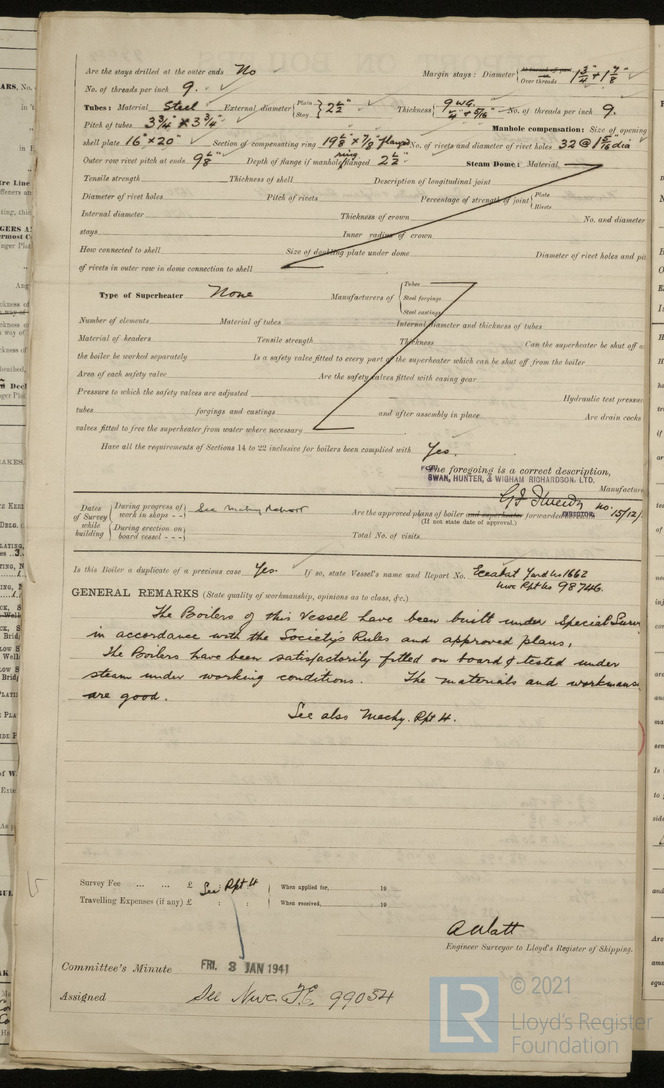 Are the stays drilled at the outer ends No Margin stays: Diameter { At thread of part Over threads 1 3/4" + 1 7/8"
No. of threads per inch 9.
Tubes: Material Steel External diameter { Plain Stay } 2 1/2" Thickness { 9 WG. 1/4" + 5/16" No. of threads per inch 9.
Pitch of tubes 3 3/4" x 3 3/4" Manhole compensation: Size of opening
shell plate 16" x 20" Section of compensating ring flanged No. of rivets and diameter of rivet holes 32 @ 1 5/16 dia
Outer row rivet pitch at ends Depth of flange if manhole ring flanged Steam Dome: Material
Tensile strength Thickness of shell Description of longitudinal joint
Diameter of rivet holes Pitch of rivets Percentage of strength of joint { Plate Rivets
Internal diameter Thickness of crown No. and diameter
stays Inner radius of crown
How connected to shell Size of doubling plate under dome Diameter of rivet holes and
of rivets in outer row in dome connection to shell
Type of Superheater None Manufacturers of { Tubes Steel forgings Steel castings
Number of elements Material of tubes Internal diameter and thickness of tubes
Material of headers Tensile strength Thickness Can the superheater be shut off
the boiler be worked separately Is a safety valve fitted to every part of the superheater which can be shut off from the boiler
Area of each safety valve Are the safety valves fitted with easing gear
Pressure to which the safety valves are adjusted Hydraulic test
tubes forgings and castings and after assembly in place Are drain cocks
valves fitted to free the superheater from water where necessary
Have all the requirements of Sections 14 to 22 inclusive for boilers been complied with Yes.
The foregoing is a correct description,
SWAN, HUNTER, & WIGHAM RICHARDSON. LTD.
Manufacture
Dates of Survey while building { During progress of work in shops - - } See machy report Are the approved plans of boiler and superheater forwarded DIRECTOR. no. 15/12/
(If not state date of approval.)
{ During erection on board vessel - - - } Total No. of visits
Is this Boiler a duplicate of a previous case Yes. If so, state Vessel's name and Report No. Yard No 1662
Nwc Rpt No 98746.
GENERAL REMARKS (State quality of workmanship, opinions as to class, &c.)
The Boilers of this Vessel have been built under Special
in accordance with the Society's Rules and approved plans,
The Boilers have been satisfactorily fitted on board & tested under
steam under working conditions. The materials and
are good.
See also Machy. Rpt 4.
Survey Fee ... ... £ See Rpt 4 When applied for, 19
Travelling Expenses (if any) £ : : When received, 19
A Watt
Engineer Surveyor to Lloyd's Register of Shipping.
Committee's Minute FRI. 3 JAN 1941
Assigned See Nwc. F.E. 99054
LR © 2021
Lloyd's Register
Foundation